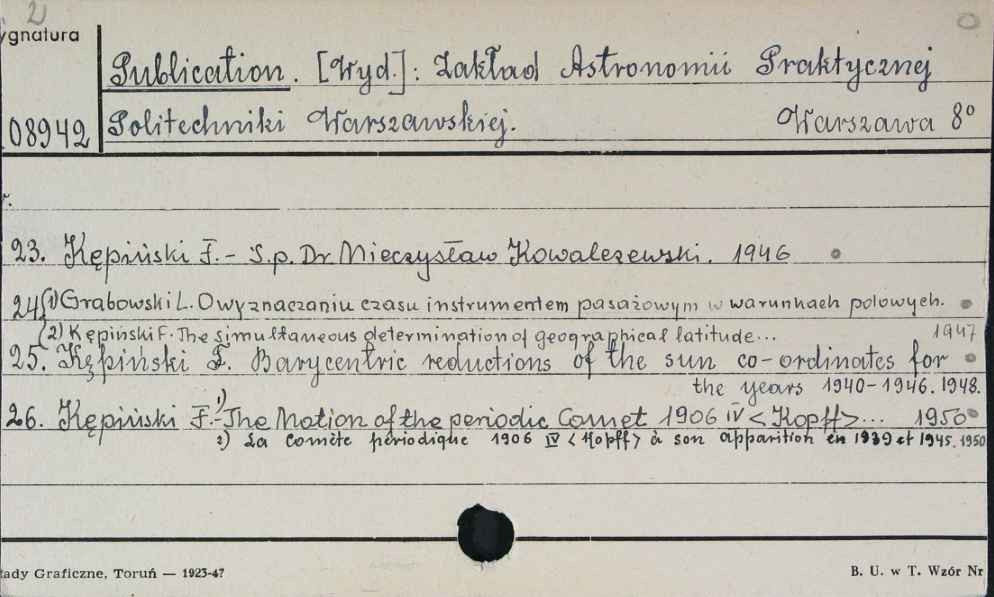 2
ygnatura
Publication. [Wyd.]: Zakład Astronomii Praktycznej
08942 Politechniki Warszawskiej. Warszawa 8°
r.
23. Kępiński F. - Ś.p. Dr. Mieczysław Kowalczewski. 1946
24 (1) Grabowski L. O wyznaczaniu czasu instrumentem pasażowym w warunkach polowych.
(2) Kępiński F. The simultaneous determination of geographical latitude... 1947
25. Kępiński F. Barycentric reductions of the sun co-ordinates for
the years 1940-1946. 1948.
26. Kępiński F. - 1) The Motion of the periodic Comet 1906 IV <Kopff>... 1950
2) La Comète périodique 1906 IV <Kopff> à son apparition en 1939 et 1945. 1950
łady Graficzne, Toruń — 1923-47
B. U. w T. Wzór Nr